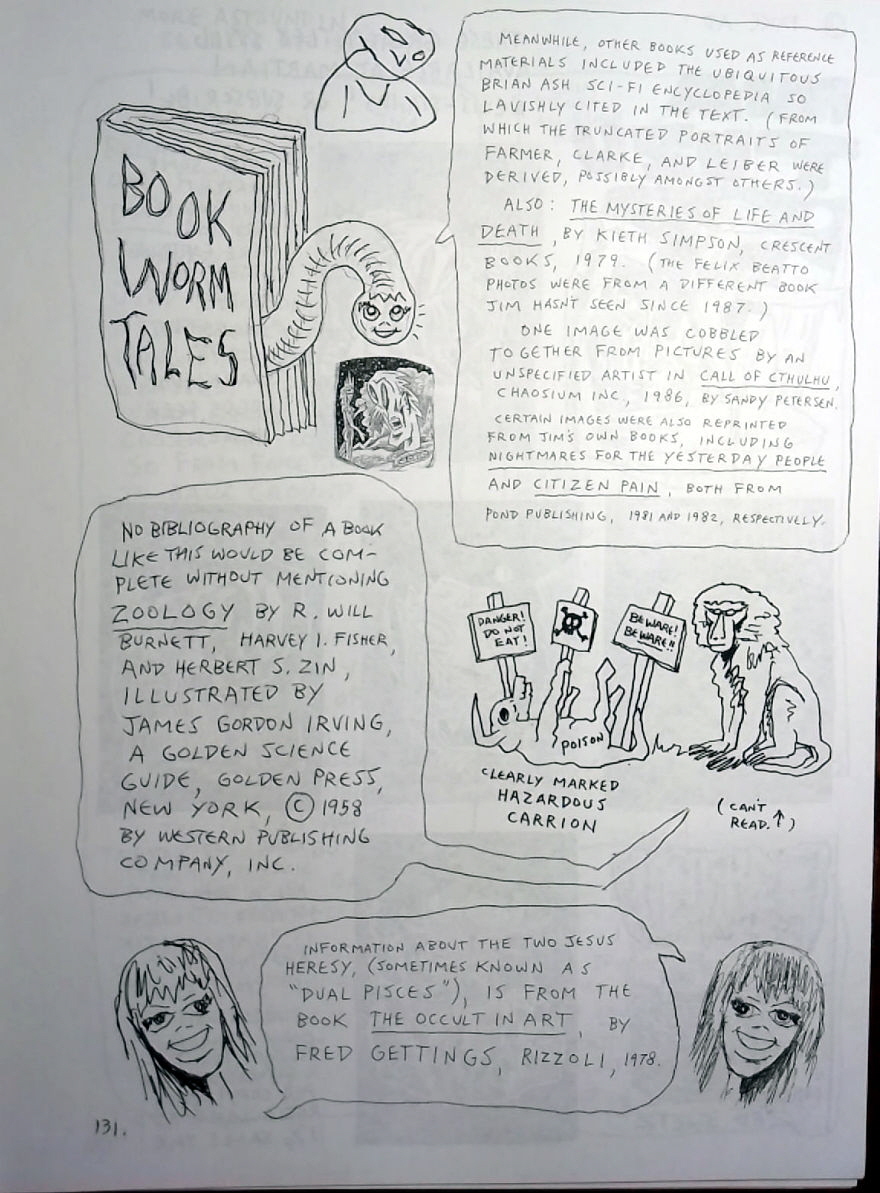 BOOK
WORM
TALES
MEANWHILE, OTHER BOOKS USED AS REFERENCE
MATERIALS INCLUDED THE UBIQUITOUS
BRIAN ASH SCI-FI ENCYCLOPEDIA SO
LAVISHLY CITED IN THE TEXT. (FROM
WHICH THE TRUNCATED PORTRAITS OF
FARMER, CLARKE, AND LEIBER WERE
DERIVED, POSSIBLY AMONGST OTHERS.)
ALSO: THE MYSTERIES OF LIFE AND
DEATH, BY KIETH SIMPSON, CRESCENT
BOOKS, 1979. (THE FELIX BEATTO
PHOTOS WERE FROM A DIFFERENT BOOK
JIM HASN'T SEEN SINCE 1987.)
ONE IMAGE WAS COBBLED
TOGETHER FROM PICTURES BY AN
UNSPECIFIED ARTIST IN CALL OF CTHULHU,
CHAOSIUM INC, 1986, BY SANDY PETERSEN.
CERTAIN IMAGES WERE ALSO REPRINTED
FROM JIM'S OWN BOOKS, INCLUDING
NIGHTMARES FOR THE YESTERDAY PEOPLE
AND CITIZEN PAIN, BOTH FROM
POND PUBLISHING, 1981 AND 1982, RESPECTIVELY.
NO BIBLIOGRAPHY OF A BOOK
LIKE THIS WOULD BE COM-
PLETE WITHOUT MENTIONING
ZOOLOGY BY R. WILL
BURNETT, HARVEY I. FISHER,
AND HERBERT S. ZIN,
ILLUSTRATED BY
JAMES GORDON IRVING,
A GOLDEN SCIENCE
GUIDE, GOLDEN PRESS,
NEW YORK, © 1958
BY WESTERN PUBLISHING
COMPANY, INC.
DANGER!
DO NOT
EAT!
BEWARE!
BEWARE!!
POISON
CLEARLY MARKED
HAZARDOUS
CARRION
(CAN'T
READ.↑)
INFORMATION ABOUT THE TWO JESUS
HERESY, (SOMETIMES KNOWN AS
"DUAL PISCES"), IS FROM THE
BOOK THE OCCULT IN ART, BY
FRED GETTINGS, RIZZOLI, 1978.
131.